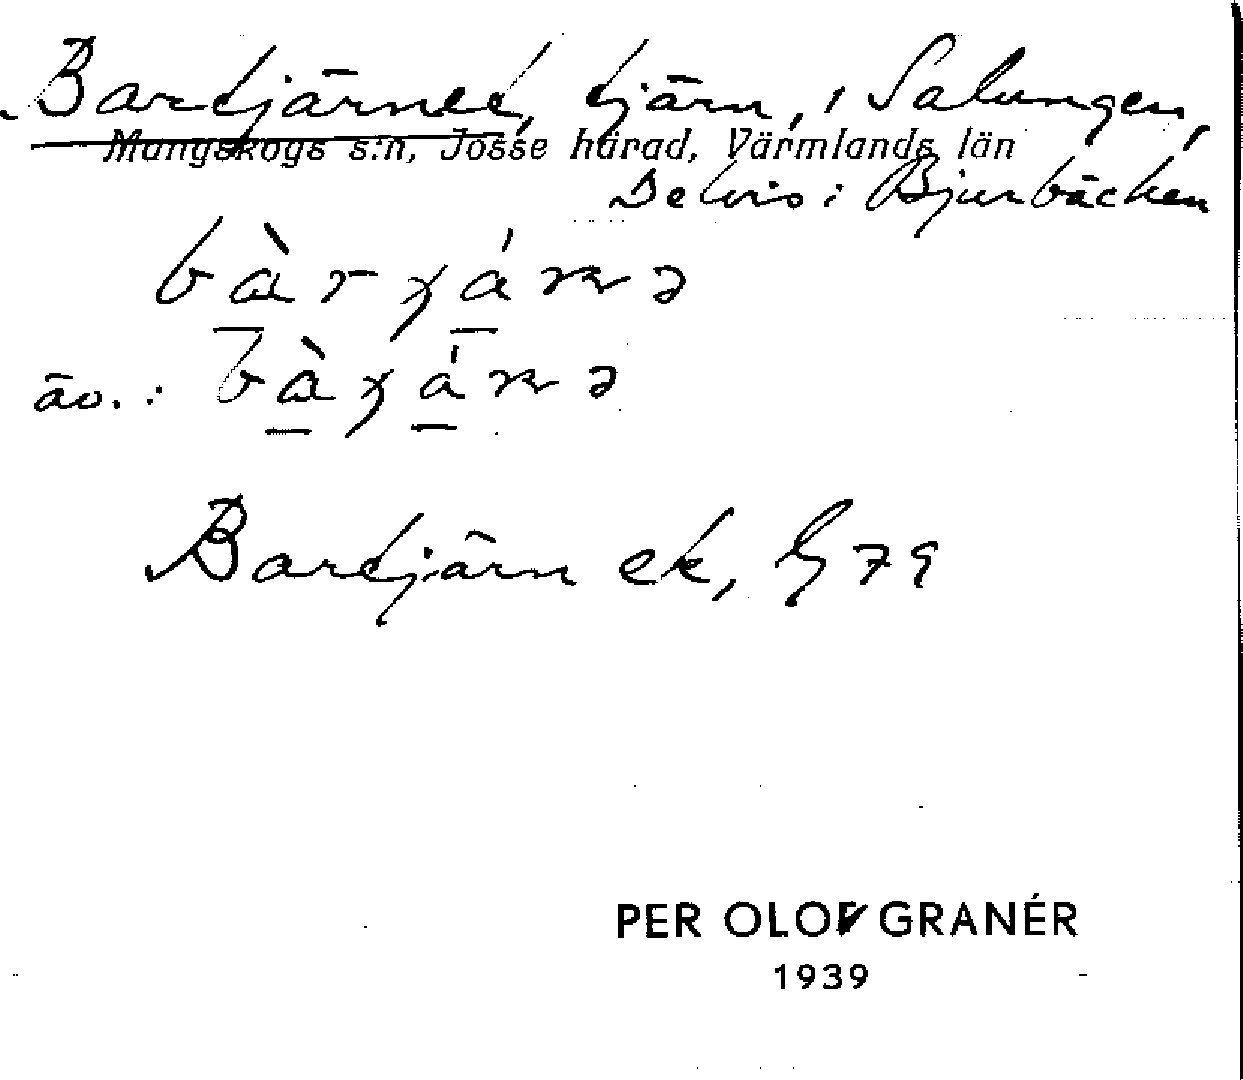 Bartjärnet, tjärn, i Salungen,
Mangskogs s:n, Jösse härad, Värmlands län
Delvis i Bjurbäcken
äv. :
Bartjärn ek, G 79
PER OLOF GRANÉR
1939